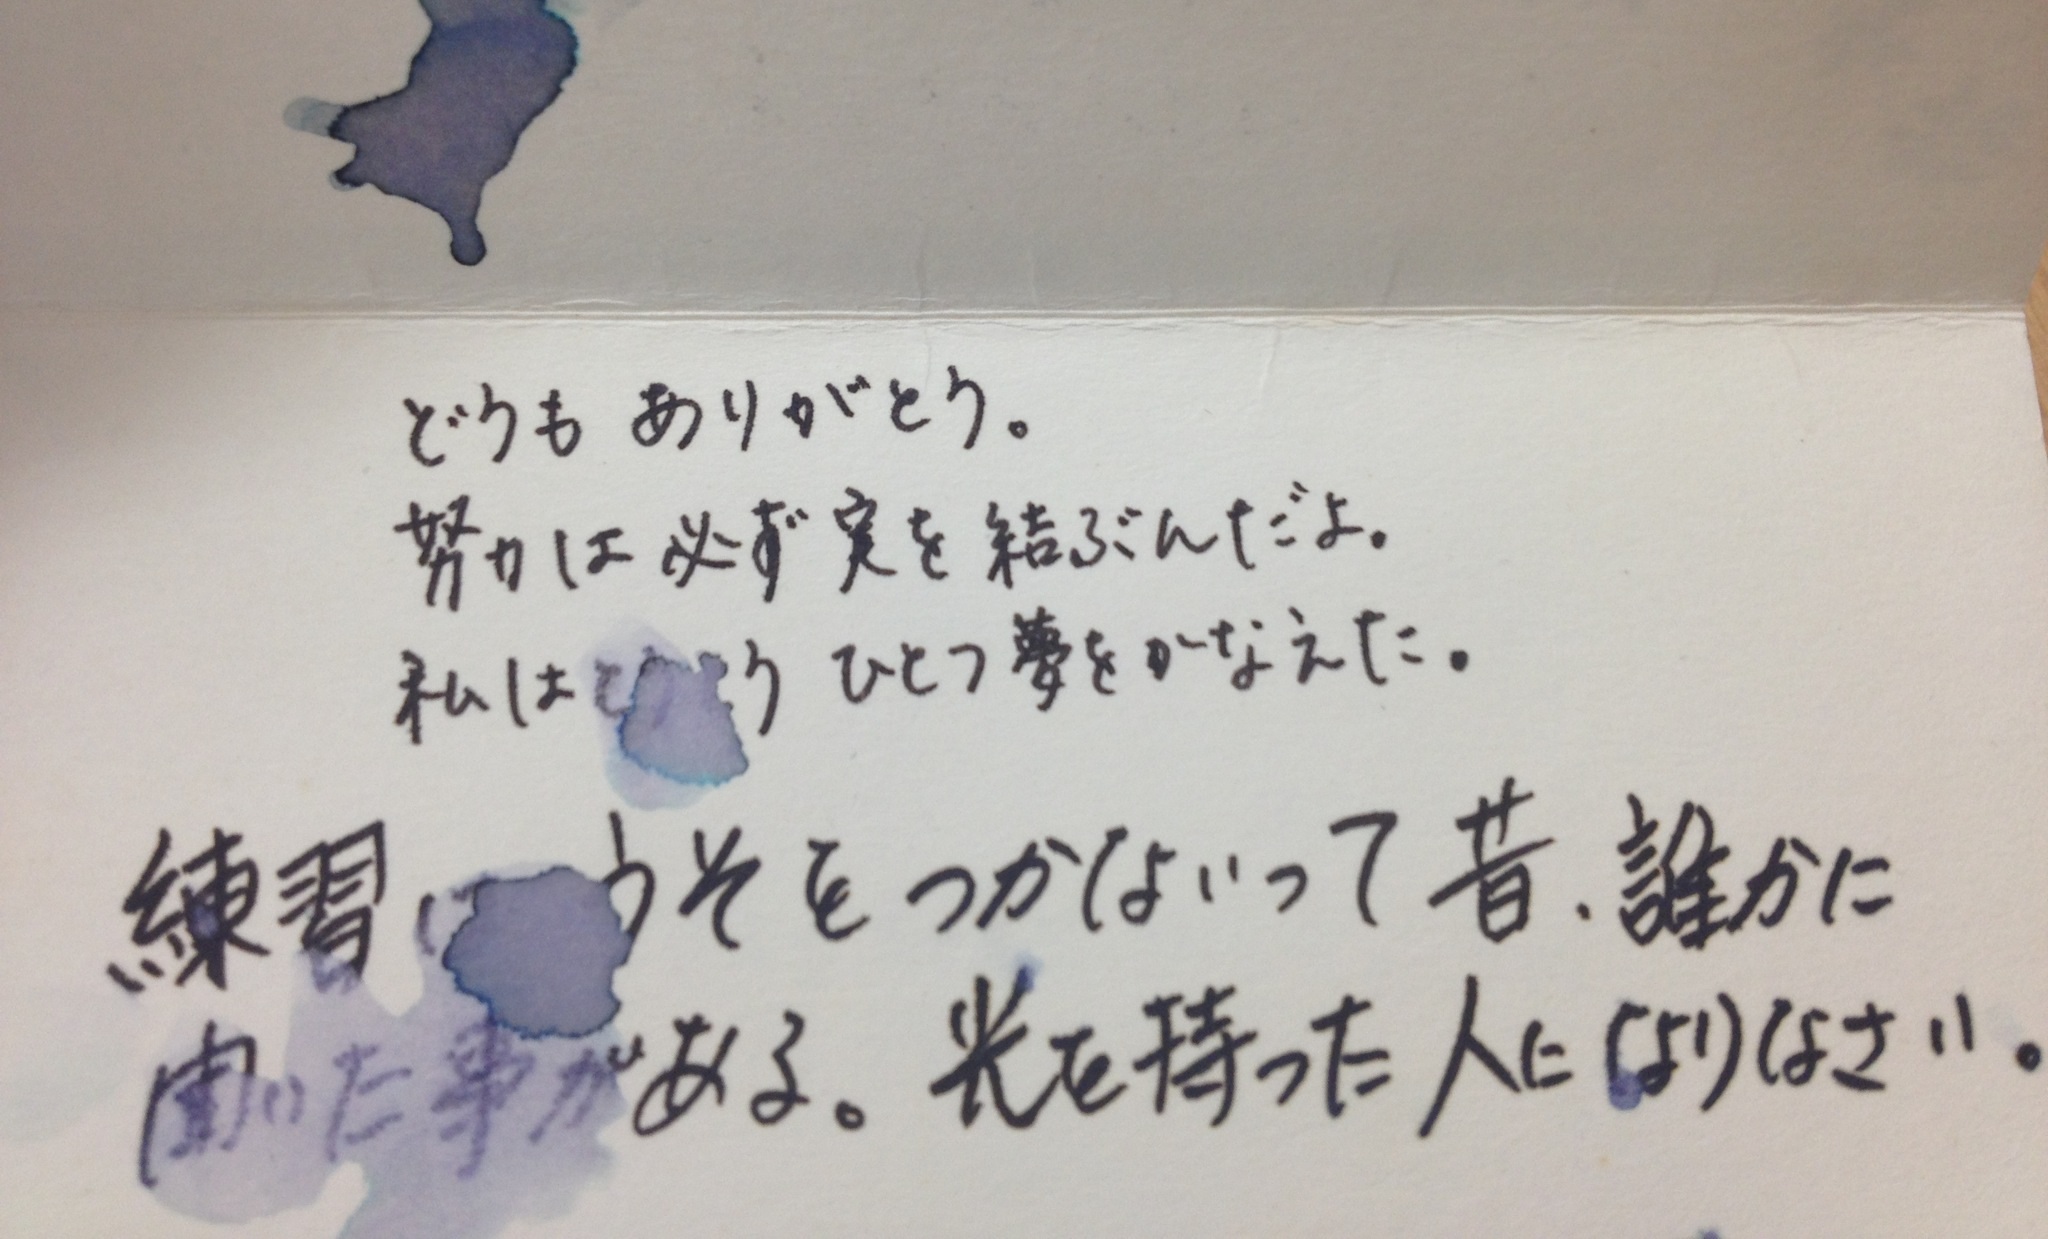 どうも ありがとう。
努力は 必ず 実を 結ぶんだよ。
私は ひとつ 夢を かなえた。
練習 うそを つかないって 昔、誰かに
聞いた事が ある。 光を 持った 人に なりなさい。